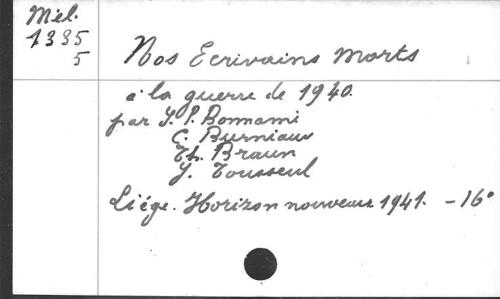 Mél.
1335
5
Nos Ecrivains Morts
à la guerre de 1940.
par J. P. Bonnami
C. Burniaux
Th. Braun
J. Tousseul
Liége. Horizon nouveaux 1941. - 16°